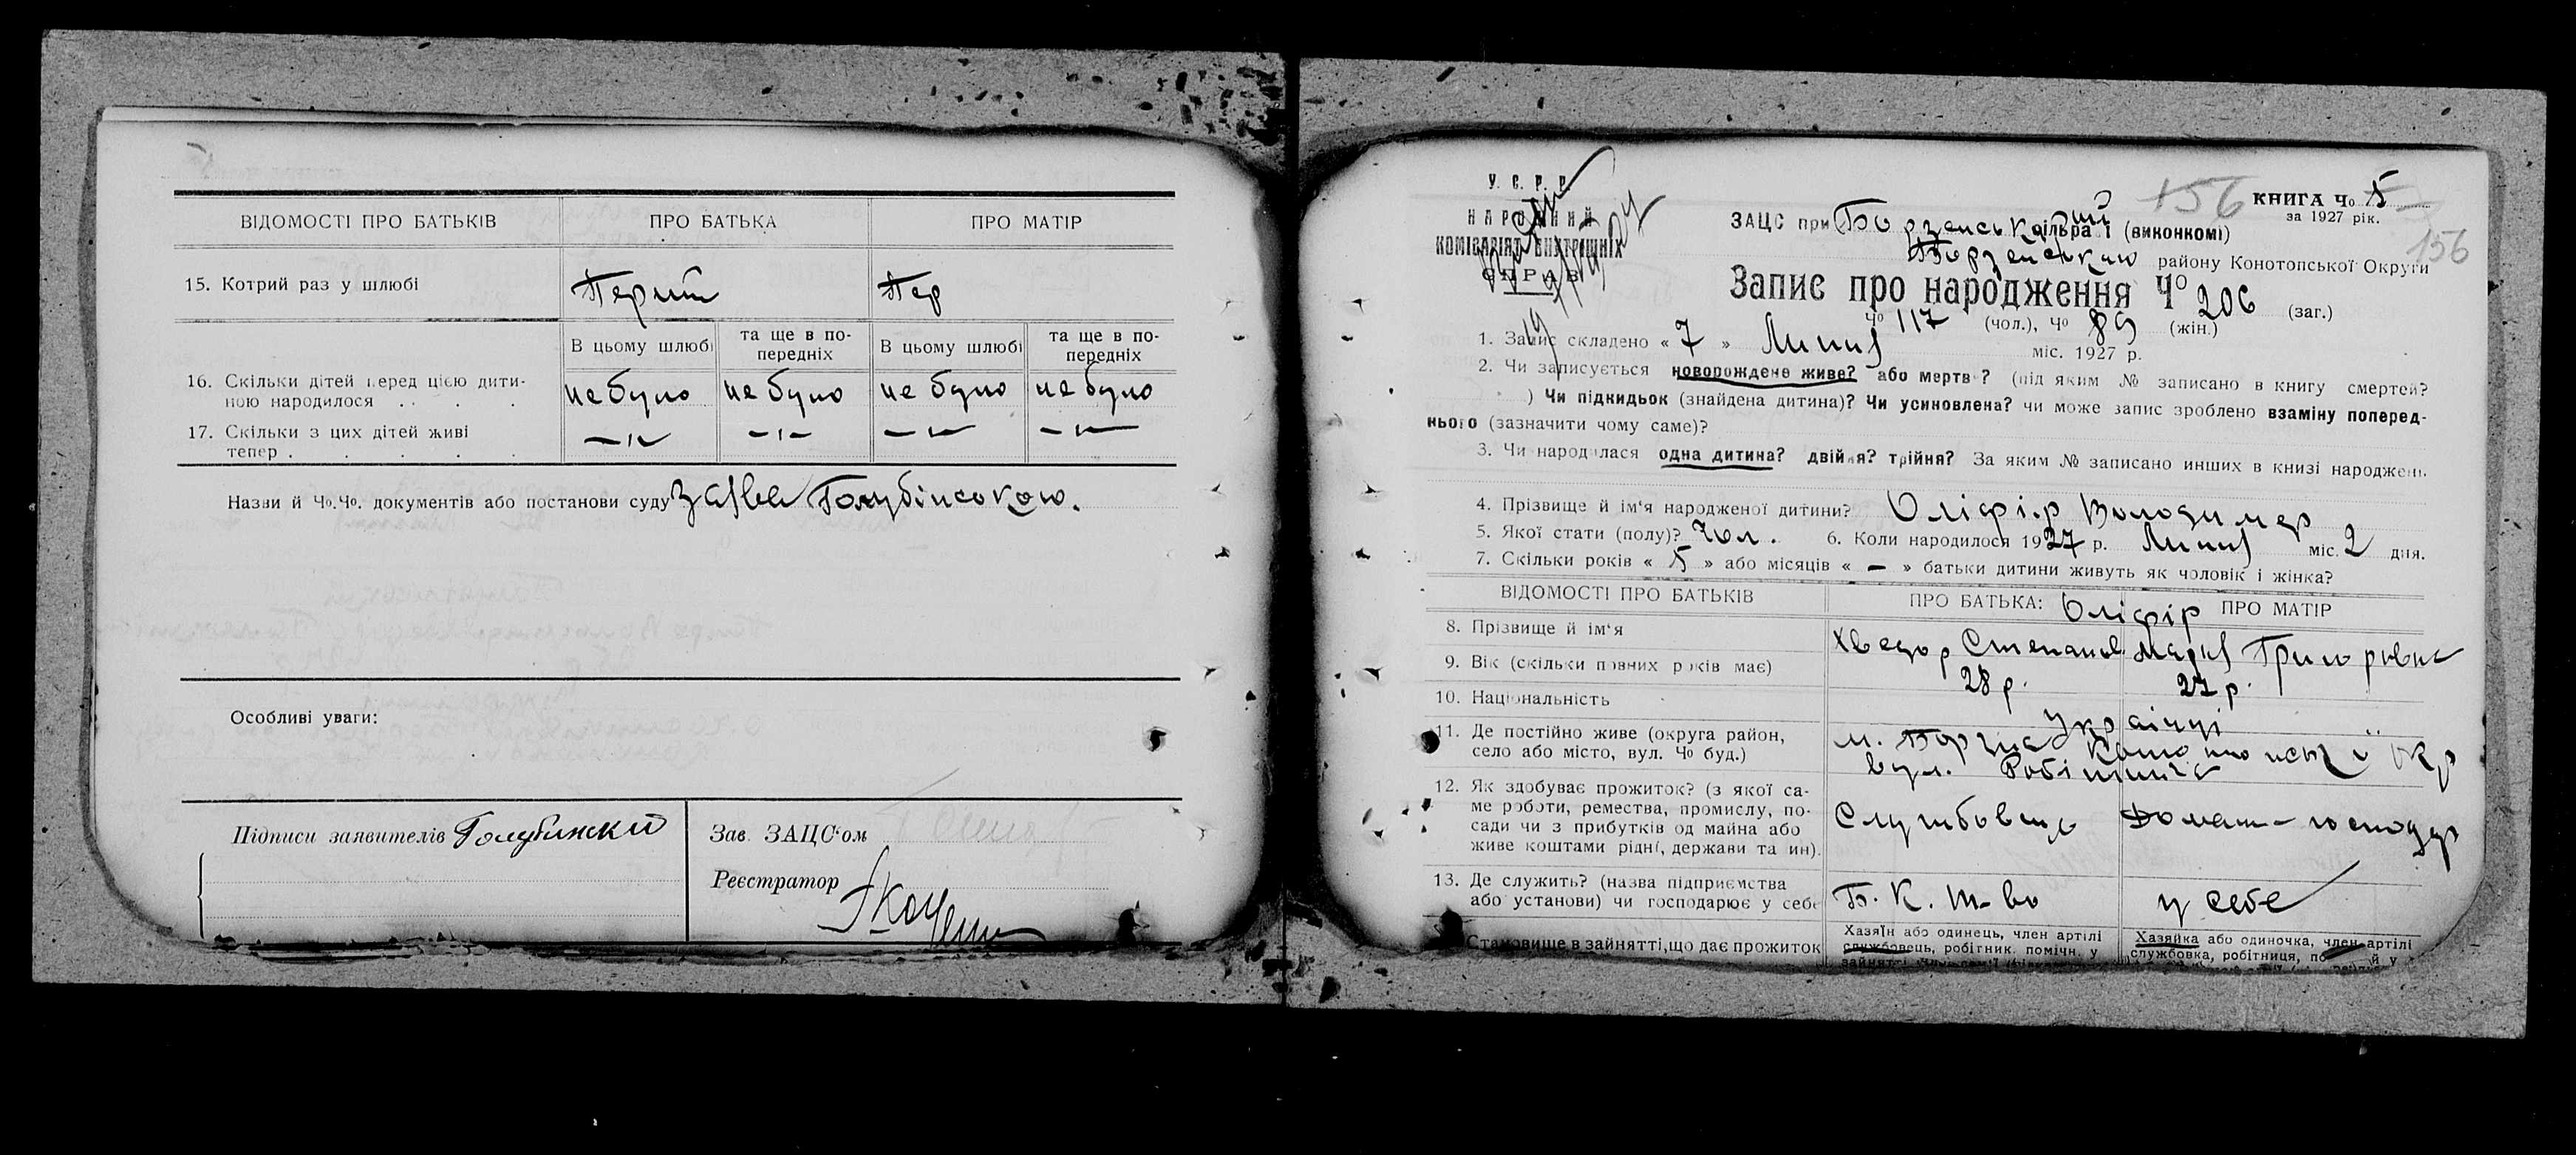 ВІДОМОСТІ ПРО БАТЬКІВ ПРО БАТЬКА ПРО МАТІР
15. Котрий раз у шлюбі Перший Пер
В цьому шлюбі та ще в по-передніх В цьому шлюбі та ще в по-передніх
16. Скільки дітей перед цією дити-
ною народилося . . . . не було не було не було не було
17. Скільки з цих дітей живі
тепер . . . . . — „ — — „ — — „ — — „ —
Назви й Чо.Чо. документів або постанови суду Заява Голубінського.
Особливі уваги:
Підписи заявителів Голубински
Зав. ЗАЦС'ом
Реєстратор
У. С. Р. Р.
НАРОДНИЙ
КОМІСАРІЯТ ВНУТРІШНІХ
СПРАВ
156 КНИГА Чо 5
за 1927 рік.
156
ЗАЦС при Борзенській сільраді (виконкомі)
Борзенського району Конотопської Округи
Запис про народження Чо 206 (заг.)
Чо 117 (чол.), Чо 89 (жін.)
1. Запис складено « 7 » Липня міс. 1927 р.
2. Чи записується новорождене живе? або мертве? (під яким № записано в книгу смертей?
) Чи підкидьок (знайдена дитина)? Чи усиновлена? чи може запис зроблено взаміну поперед-
нього (зазначити чому саме)?
3. Чи народилася одна дитина? двійня? трійня? За яким № записано инших в книзі народжень
4. Прізвище й ім'я народженої дитини? Оліфір Володимер
5. Якої стати (полу)? Чол. 6. Коли народилося 1927 р. Липня міс. 2 дня.
7. Скільки років « 5 » або місяців « — » батьки дитини живуть як чоловік і жінка?
ВІДОМОСТІ ПРО БАТЬКІВ ПРО БАТЬКА: Оліфір ПРО МАТІР
8. Прізвище й ім'я Хведор Степанов. Марія Григорівна
9. Вік (скільки повних років має) 28 р. 27 р.
10. Національність українці
11. Де постійно живе (округа район,
село або місто, вул. Чо буд.) м. Борзна Конотопської Окр
вул. Робітнича
12. Як здобуває прожиток? (з якої са-
ме роботи, ремества, промислу, по-
сади чи з прибутків од майна або
живе коштами рідні, держави та ин). Службовець Домаш-господар
13. Де служить? (назва підприємства
або установи) чи господарює у себе Б. К. Т-во у себе
Становище в зайнятті, що дає прожиток
Хазяїн або одинець, член артілі
службовець, робітник. помічн. у
Хазяйка або одиночка, член артілі
службовка, робітниця,